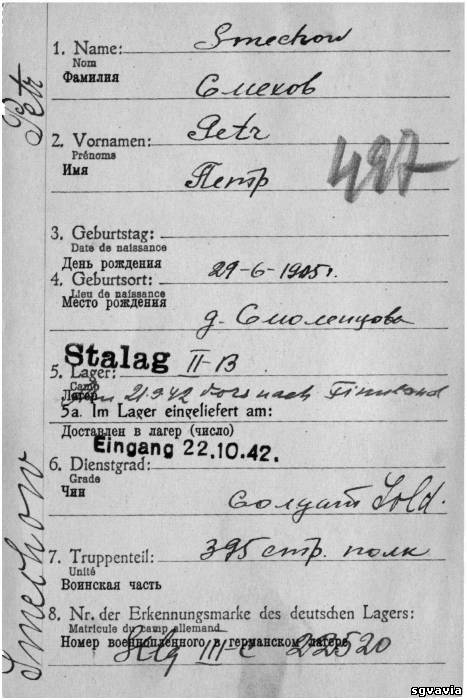 Petr
Smechow
1. Name: Smechow
Nom
Фамилия
Смехов
2. Vornamen: Petr
Prénoms
Имя
Петр
497
3. Geburtstag:
Date de naissance
День рождения
29-6-1905 г.
4. Geburtsort:
Lieu de naissance
Место рождения
д. Смоленцова
Stalag II-B
5. Lager:
Camp
Лагерь
21.9.42 nach Finnland
5a. Im Lager eingeliefert am:
Доставлен в лагер (число)
Eingang 22.10.42.
6. Dienstgrad:
Grade
Чин
Солдат Sold.
7. Truppenteil: 395 стр. полк
Unité
Воинская часть
8. Nr. der Erkennungsmarke des deutschen Lagers:
Matricule du camp allemand
Номер военнопленного в германском лагере
Stlg III-C 22520
sgvavia